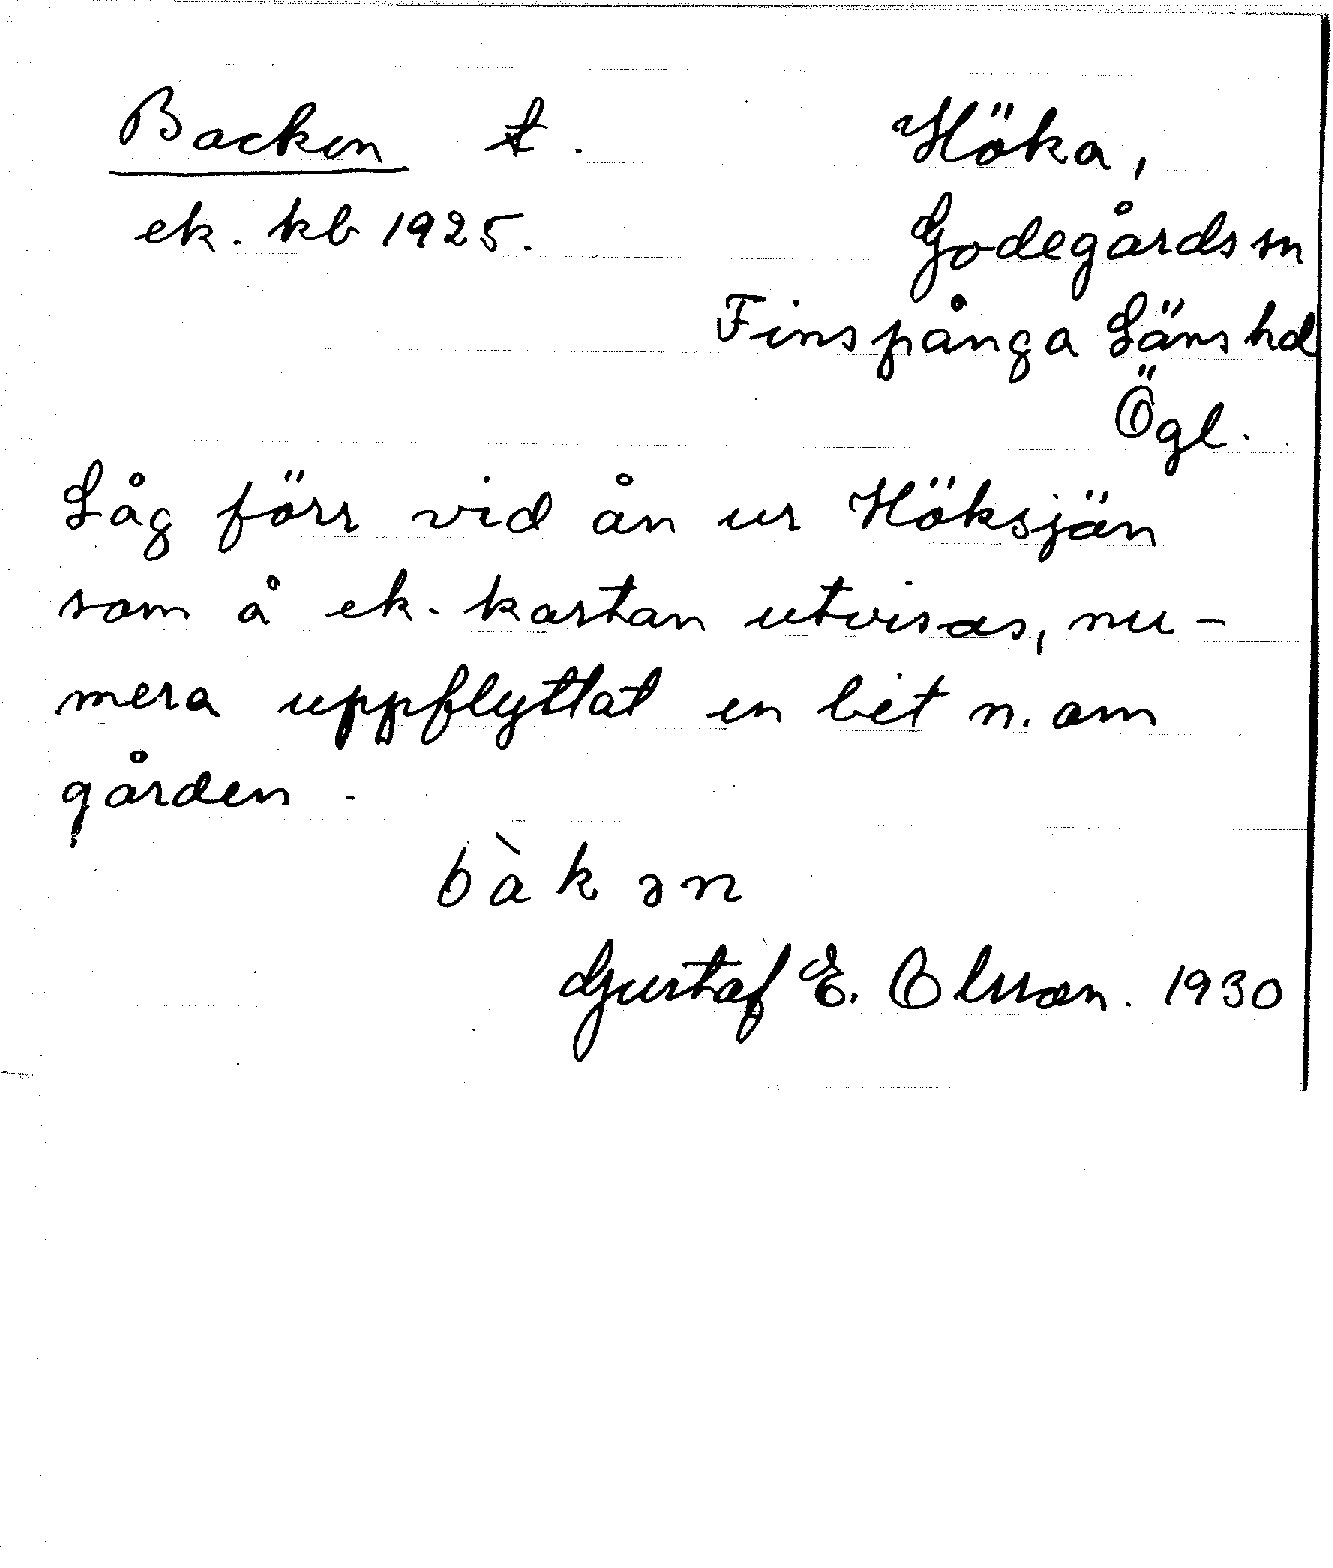 Backen t.
Höka,
ek. kb 1925.
Godegårds sn
Finspånga Läns hd
Ögl.
Låg förr vid ån ur Höksjön
som å ek. kartan utvisas, nu-
mera uppflyttat en bit n. om
gården.
bàkən
Gustaf E. Olsson. 1930